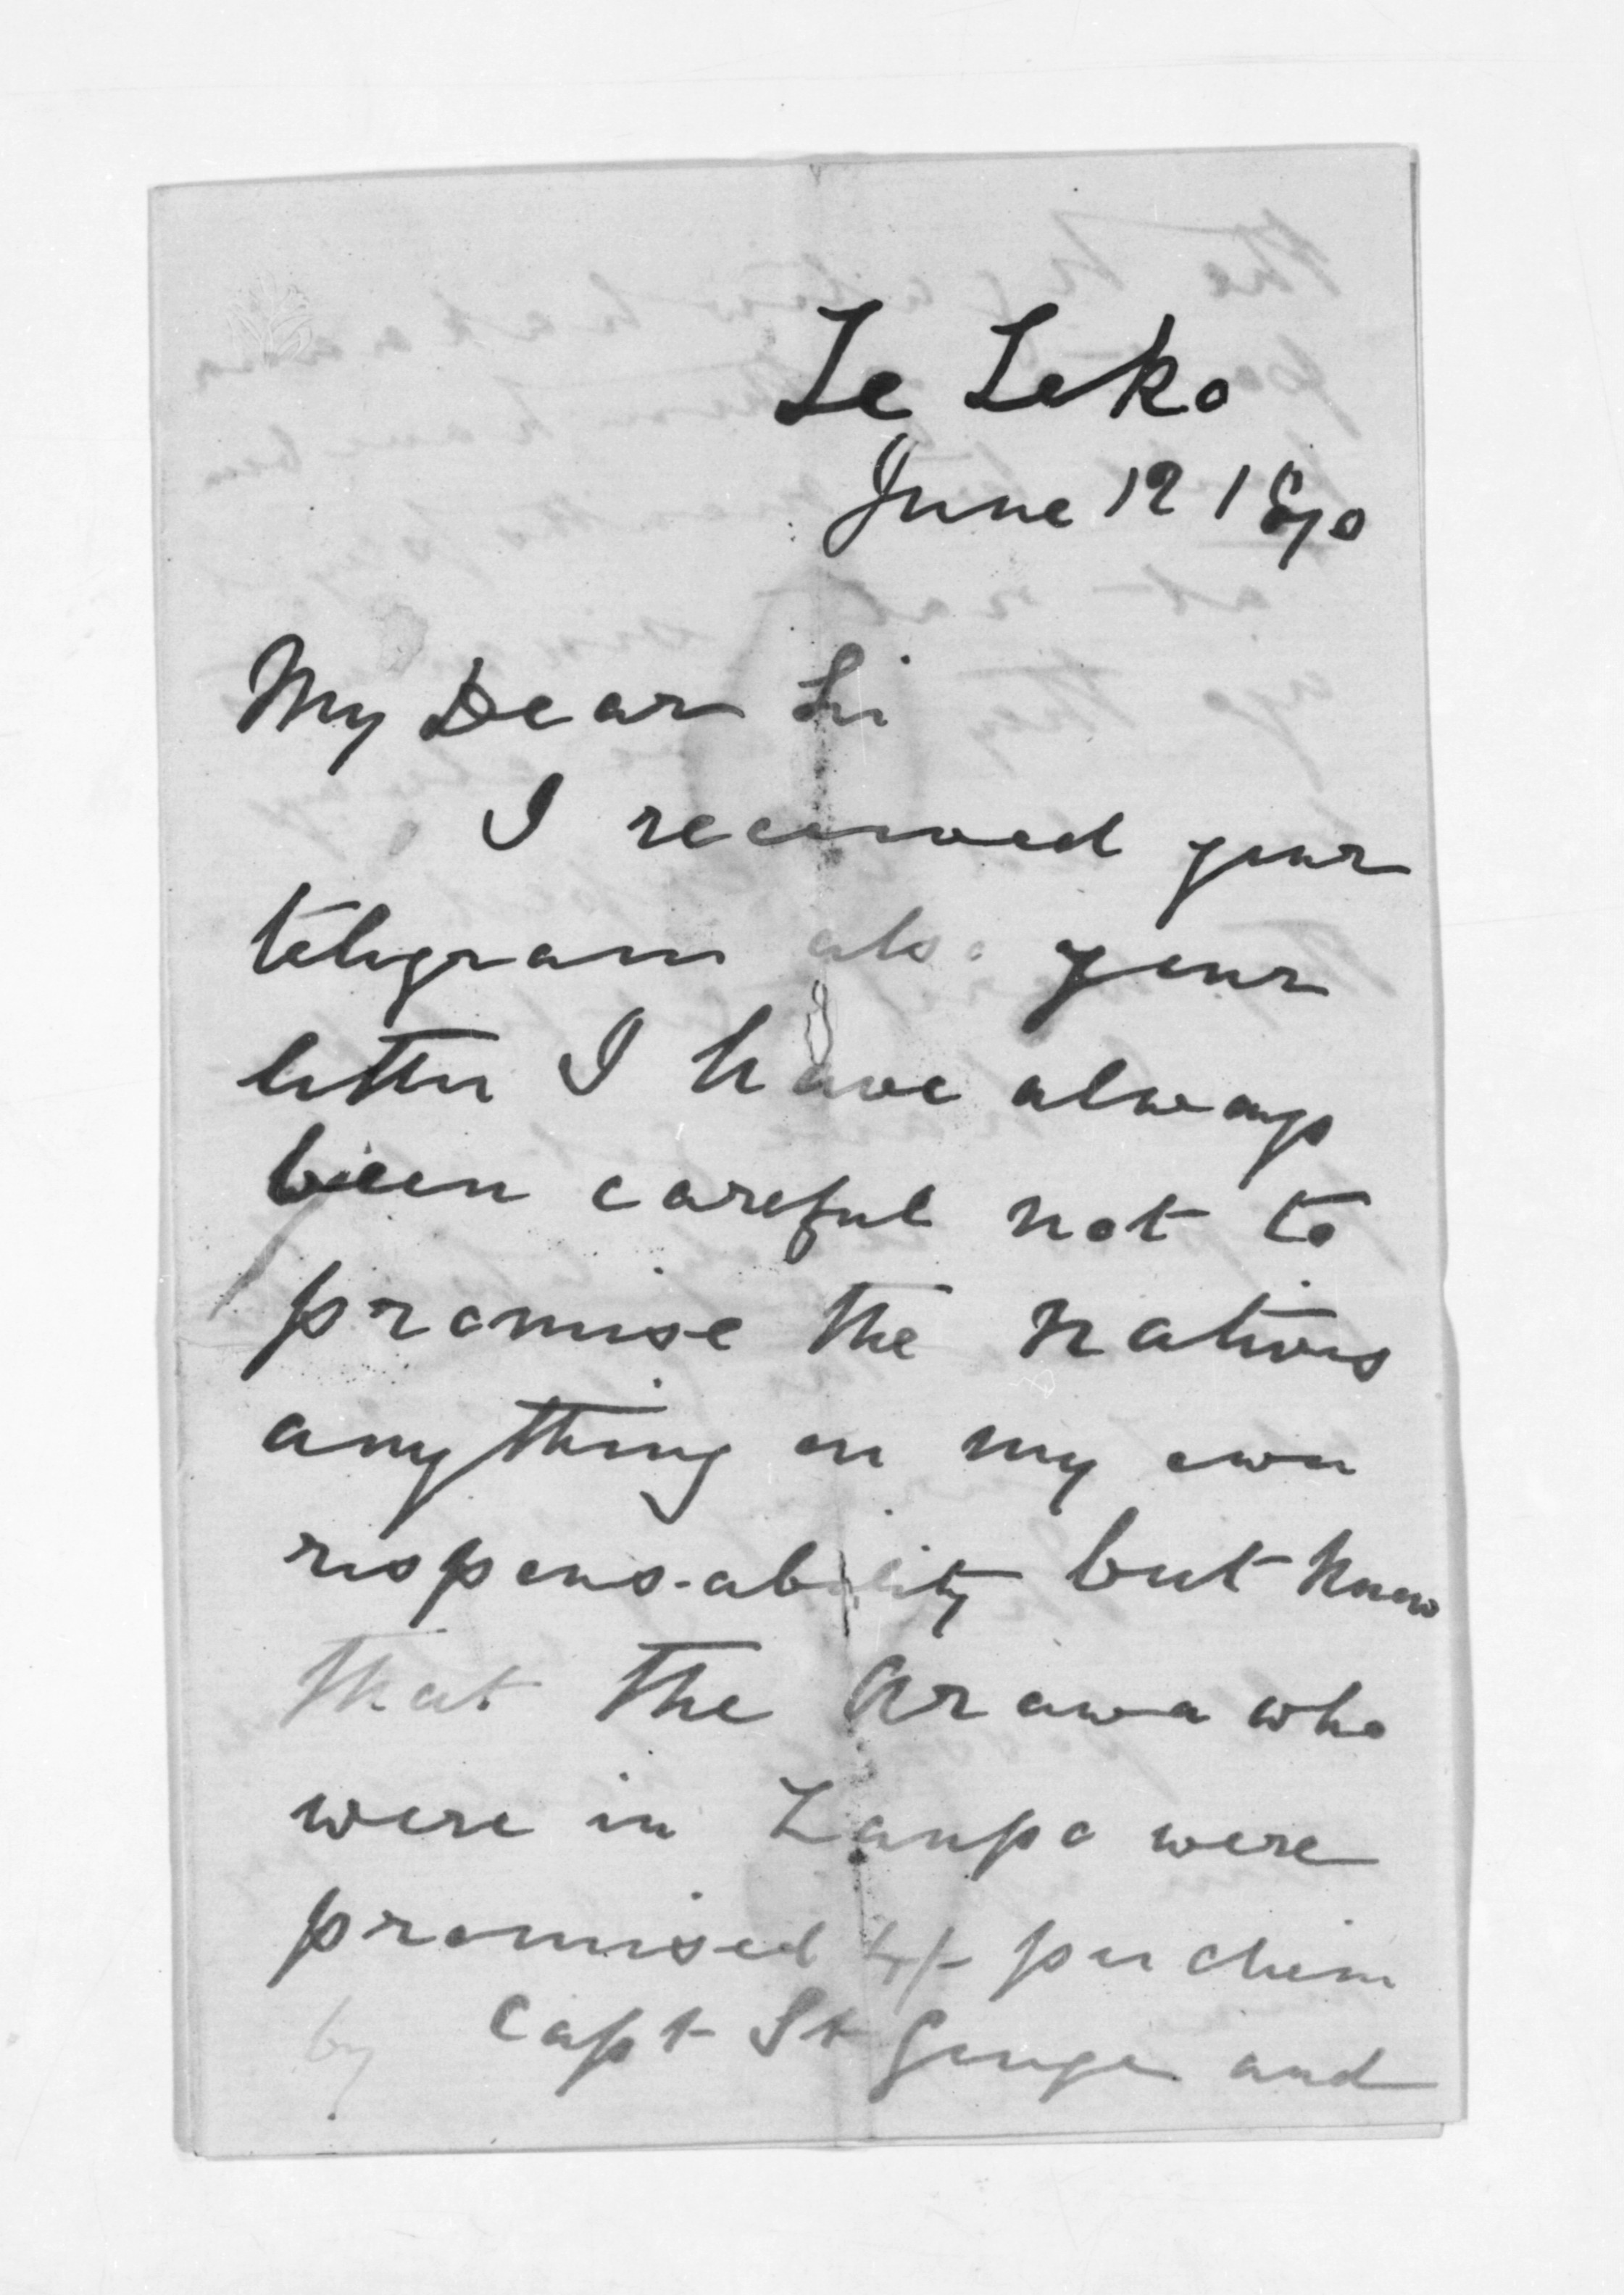 Te Teko
June 12 1870
My Dear Sir
I received your
telegram also your
letter I have always
been careful not to
promise the natives
anything on my own
responsability but know
that the Arawa who
were in Taupo were
promised 4/- per diem
by Capt St George and